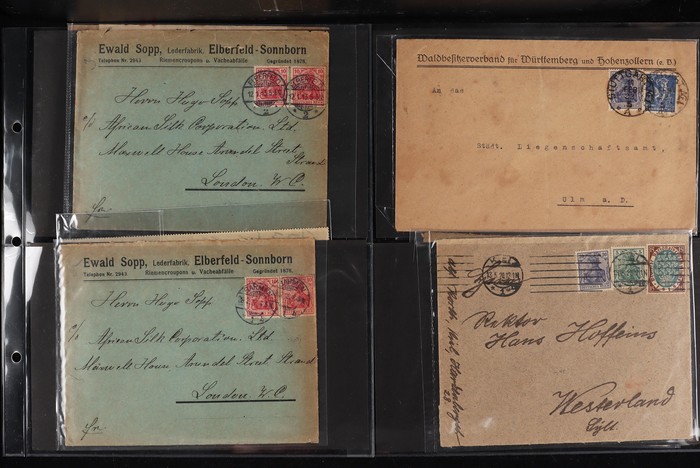 Ewald Sopp, Lederfabrik, Elberfeld-Sonnborn
Telephon Nr. 2943 Riemencroupons u. Vacheabfälle Gegründet 1876.
Herrn Hugo Sopp
c/o African Silk Corporation. Ltd.
Maxwell House Arundel Street,
Strand
London. W. C.
Waldbesitzerverband für Württemberg und Hohenzollern (e. V.)
An das
Städt. Liegenschaftsamt,
Ulm a. D.
Ewald Sopp, Lederfabrik, Elberfeld-Sonnborn
Telephon Nr. 2943 Riemencroupons u. Vacheabfälle Gegründet 1876.
Herrn Hugo Sopp
c/o African Silk Corporation. Ltd.
Maxwell House Arundel Street Strand
London. W. C.
Rektor
Hans Hoffeins
Westerland
Sylt.